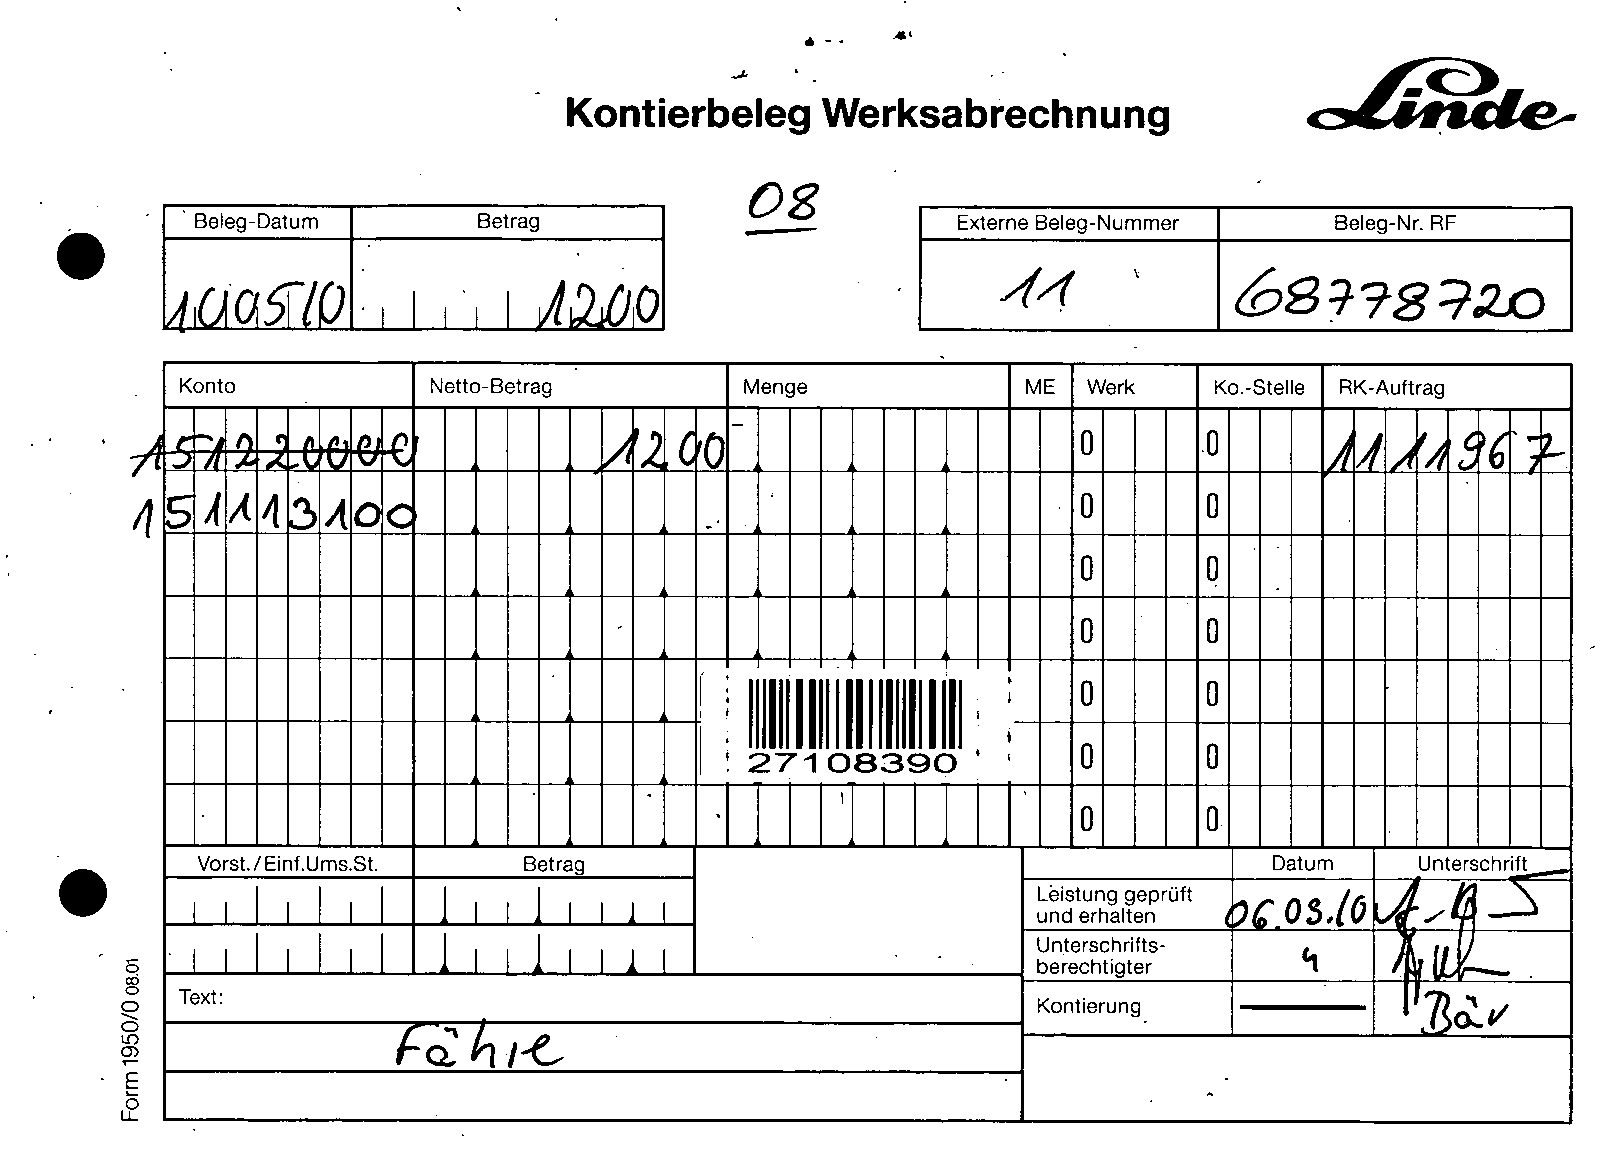 Kontierbeleg Werksabrechnung
Linde
08
Beleg-Datum Betrag Externe Beleg-Nummer Beleg-Nr. RF
100510 1200 11 68778720
Konto Netto-Betrag Menge ME Werk Ko.-Stelle RK-Auftrag
151220000 1200 0 0 1111967
151113100 0 0
0 0
0 0
0 0
0 0
0 0
27108390
Vorst./Einf.Ums.St. Betrag Datum Unterschrift
Leistung geprüft und erhalten 06.03.10
Unterschrifts-berechtigter
Kontierung Bär
Text:
Fähre
Form 1950/0 08.01